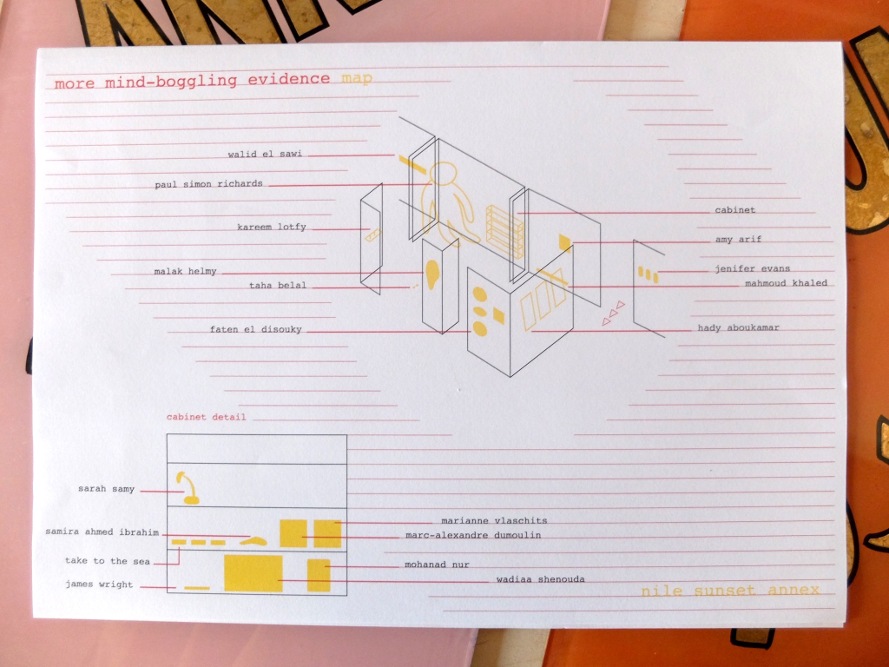 more mind-boggling evidence map
walid el sawi
paul simon richards
kareem lotfy
malak helmy
taha belal
faten el disouky
cabinet
amy arif
jenifer evans
mahmoud khaled
hady aboukamar
cabinet detail
sarah samy
samira ahmed ibrahim
take to the sea
james wright
marianne vlaschits
marc-alexandre dumoulin
mohanad nur
wadiaa shenouda
nile sunset annex